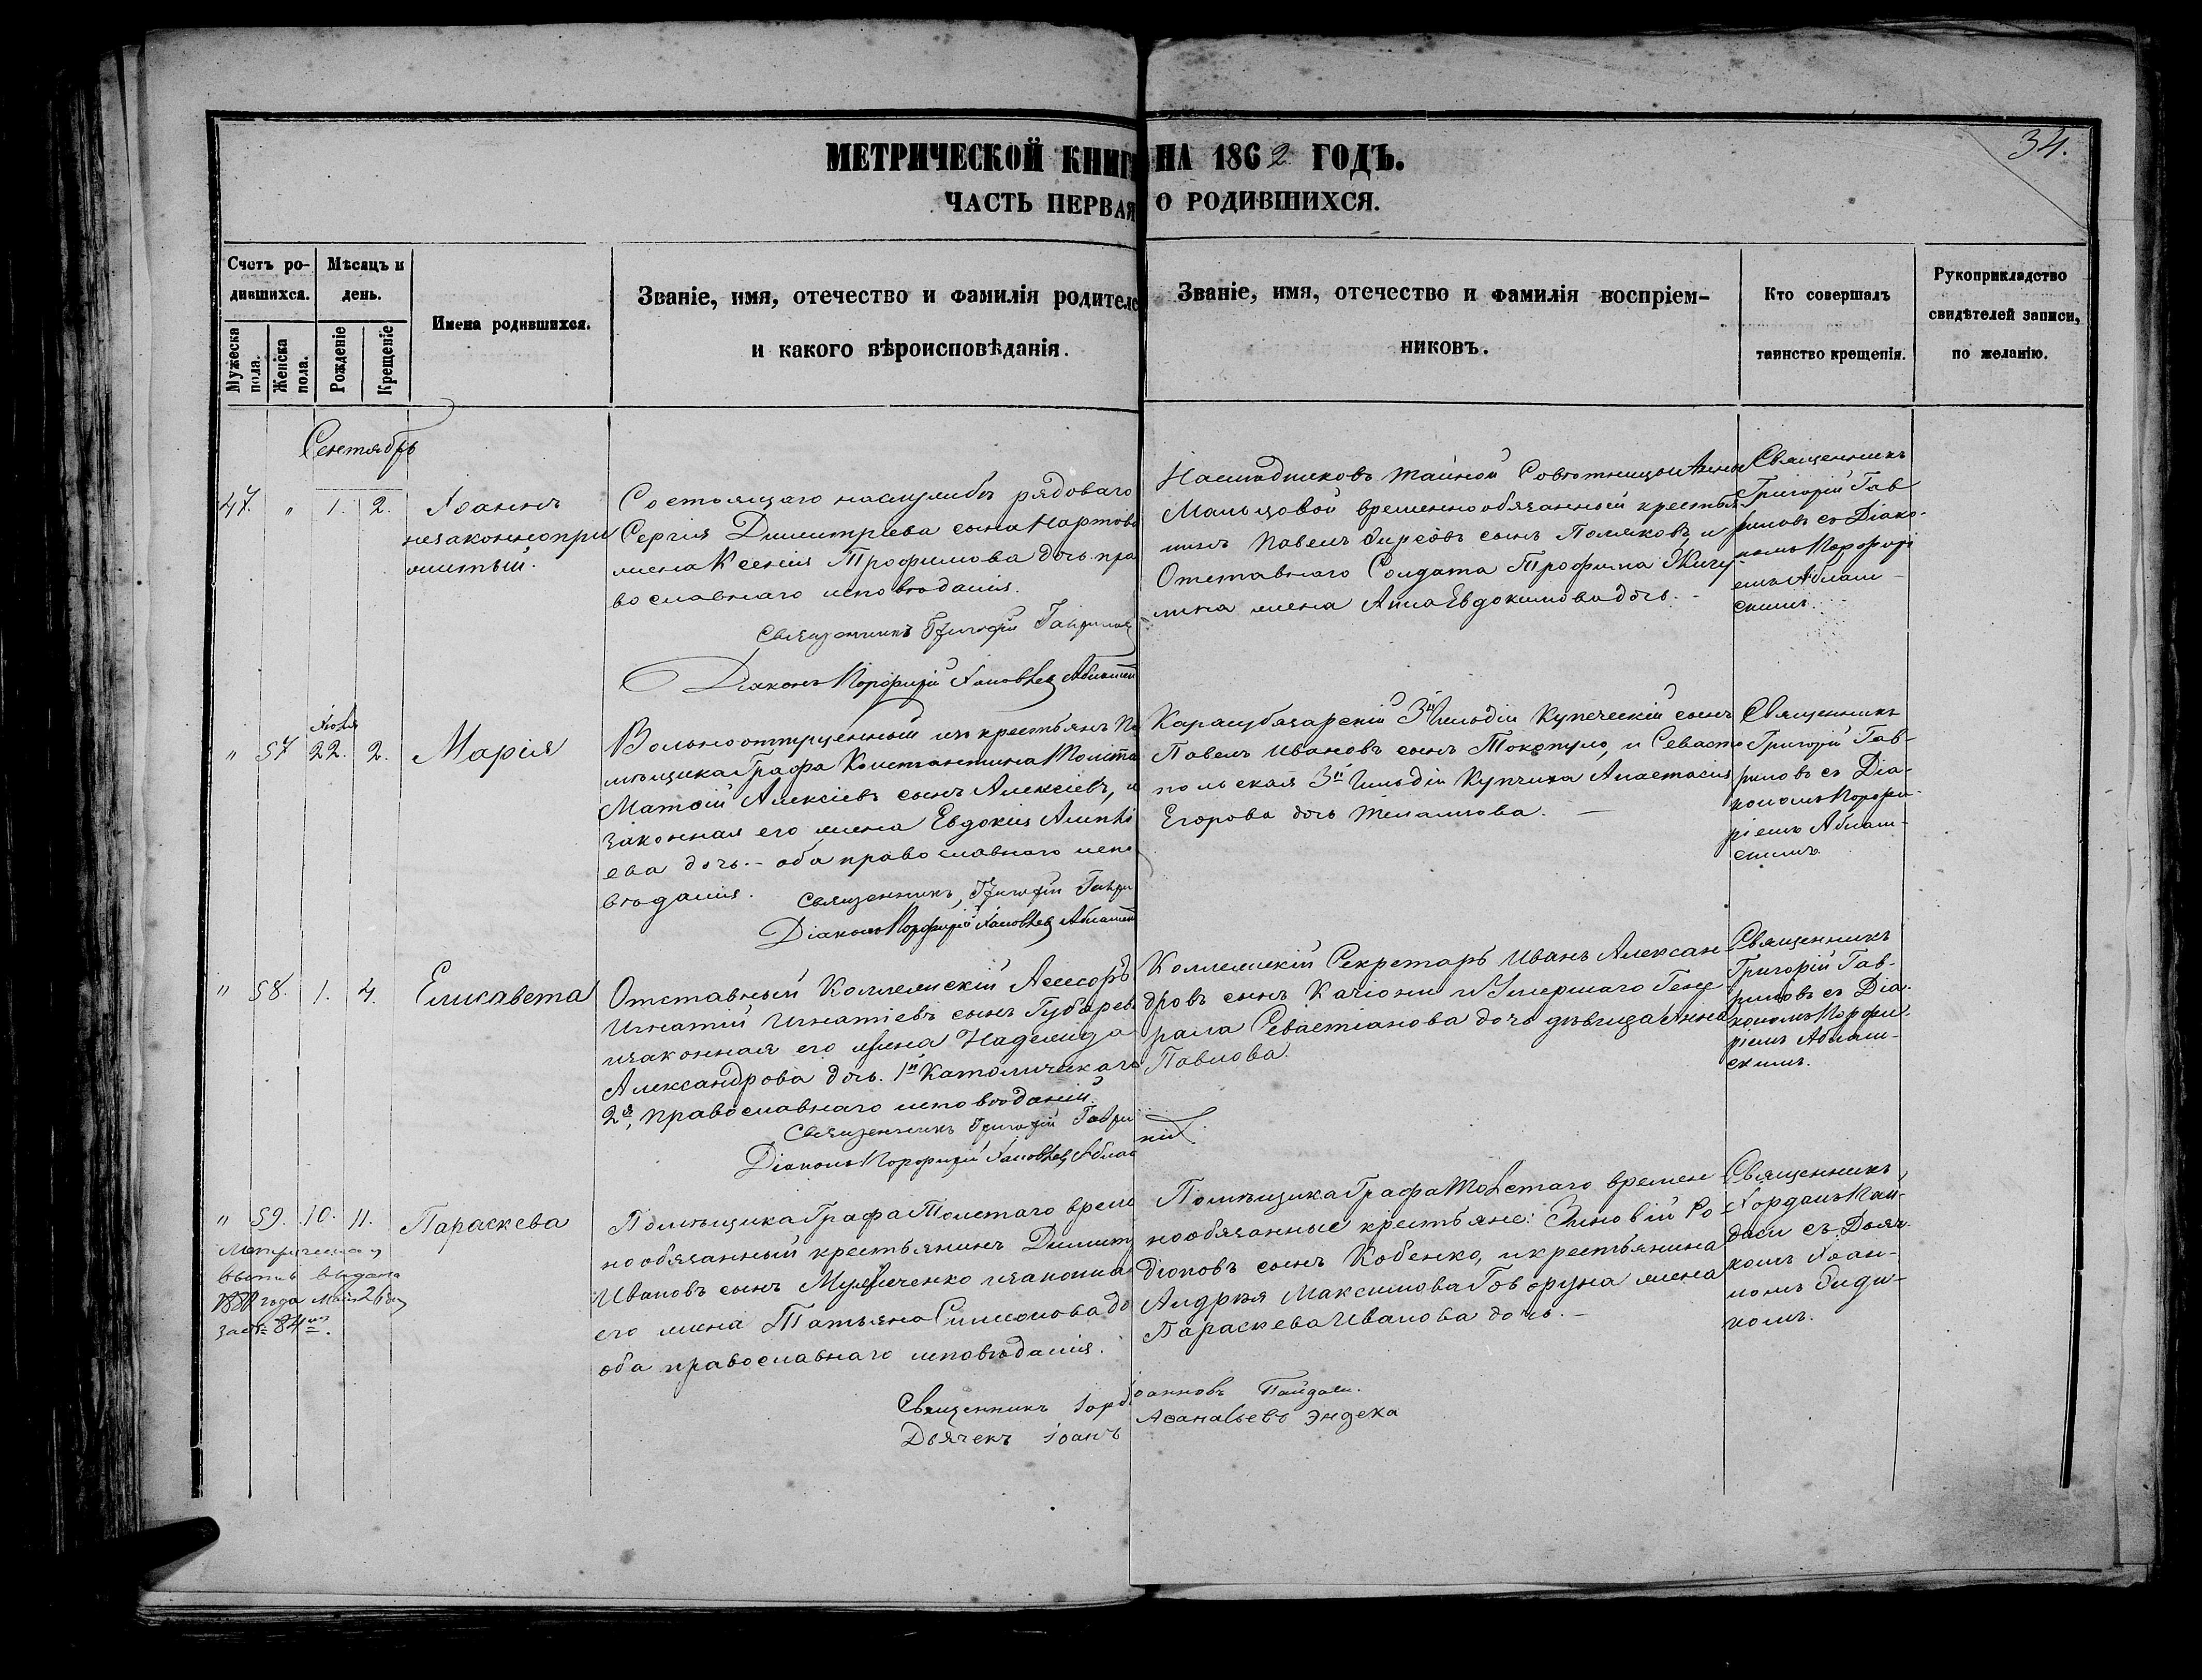 34.
МЕТРИЧЕСКОЙ КНИГИ НА 1862 ГОДЪ.
ЧАСТЬ ПЕРВАЯ О РОДИВШИХСЯ.
Счетъ ро-
дившихся.
Мужеска пола.
Женска пола.
Мѣсяцъ и
день.
Рожденіе
Крещеніе
Имена родившихся.
Званіе, имя, отечество и фамилія родителе
и какого вѣроисповѣданія.
Званіе, имя, отечество и фамилія воспріем-
никовъ.
Кто совершалъ
таинство крещенія.
Рукоприкладство
свидѣтелей записи,
по желанію.
Сентябрь
47. " 1. 2.
Іоаннъ
незаконнопри
житый.
Состоящаго наслужбѣ рядоваго
Сергія Димитріева сына
жена Ксенія Трофимова дочь пра
вославнаго исповѣданія.
Священникъ Григорій Гаврилов
Діаконъ Порфирій Яковлев
Тайной Совѣтницы Анны
Мальцовой временнообязанный крестья
нинъ Павелъ сынъ Поляковъ, и
Отставнаго Солдата Трофима
жена Анна Евдокимова дочь. -
Священникъ
Григорій Гав
риловъ съ Діако-
номъ Порфирі
емъ Аблаж-
скимъ.
" 57 Іюля 22. 2.
Марія
Вольноотпущенный изъ крестьянъ По
мѣщика Графа Константина Толста
Матѳій Алексіевъ сынъ Алексіевъ, и
законная его жена Евдокія
ева дочь. - оба православнаго испо
вѣданія.
Священникъ, Григорій Гаври
Діаконъ Порфирій Яковлев
Карасубазарскій 3й Гильдіи Купеческій сынъ
Павелъ Ивановъ сынъ и Севасто
польская 3й Гильдіи Купчиха Анастасія
Егорова дочь
Священникъ
Григорій Гав-
риловъ съ Діа-
кономъ Порфи-
ріемъ Аблаж-
скимъ
" 58. 1. 4.
Елисавета
Отставный Коллежскій Асессоръ
Игнатій Игнатіевъ сынъ Губарев
изаконная его жена Надежда
Александрова дочь. 1й Католическаго
2я, православнаго исповѣданій.
Священникъ Григорій Гаври
Діаконъ Порфирій Яковлев
Коллежскій Секретарь Иванъ Алексан
дровъ сынъ Качіони и Умершаго Гене
рала Севастіанова дочь дѣвица Анна
Павлова.
Священникъ
Григорій Гав-
риловъ съ Діа-
кономъ Порфи-
ріемъ Аблаж-
скимъ.
" 59. 10. 11.
Параскева
Метрическая
выпись выдана
года Мая 26
за № 84
Помѣщика Графа Толстаго време
нообязанный крестьянинъ Димит
Ивановъ сынъ изаконна
его жена Татьяна Симеонова до
оба православнаго исповѣданія.
Помѣщика Графа Толстаго времен
нообязанные крестьяне: Зиновій Ро
діоновъ сынъ Кобенко, икрестьянина
Андрея Максимова Говоруна жена
Параскева Иванова дочь. -
Священникъ
Іорданъ Пай-
даси съ Дьяч-
комъ Іоан-
номъ
Священникъ Іорд Іоанновъ Пайдаси.
Дьячекъ Іоанъ Аѳанасьевъ Эндека